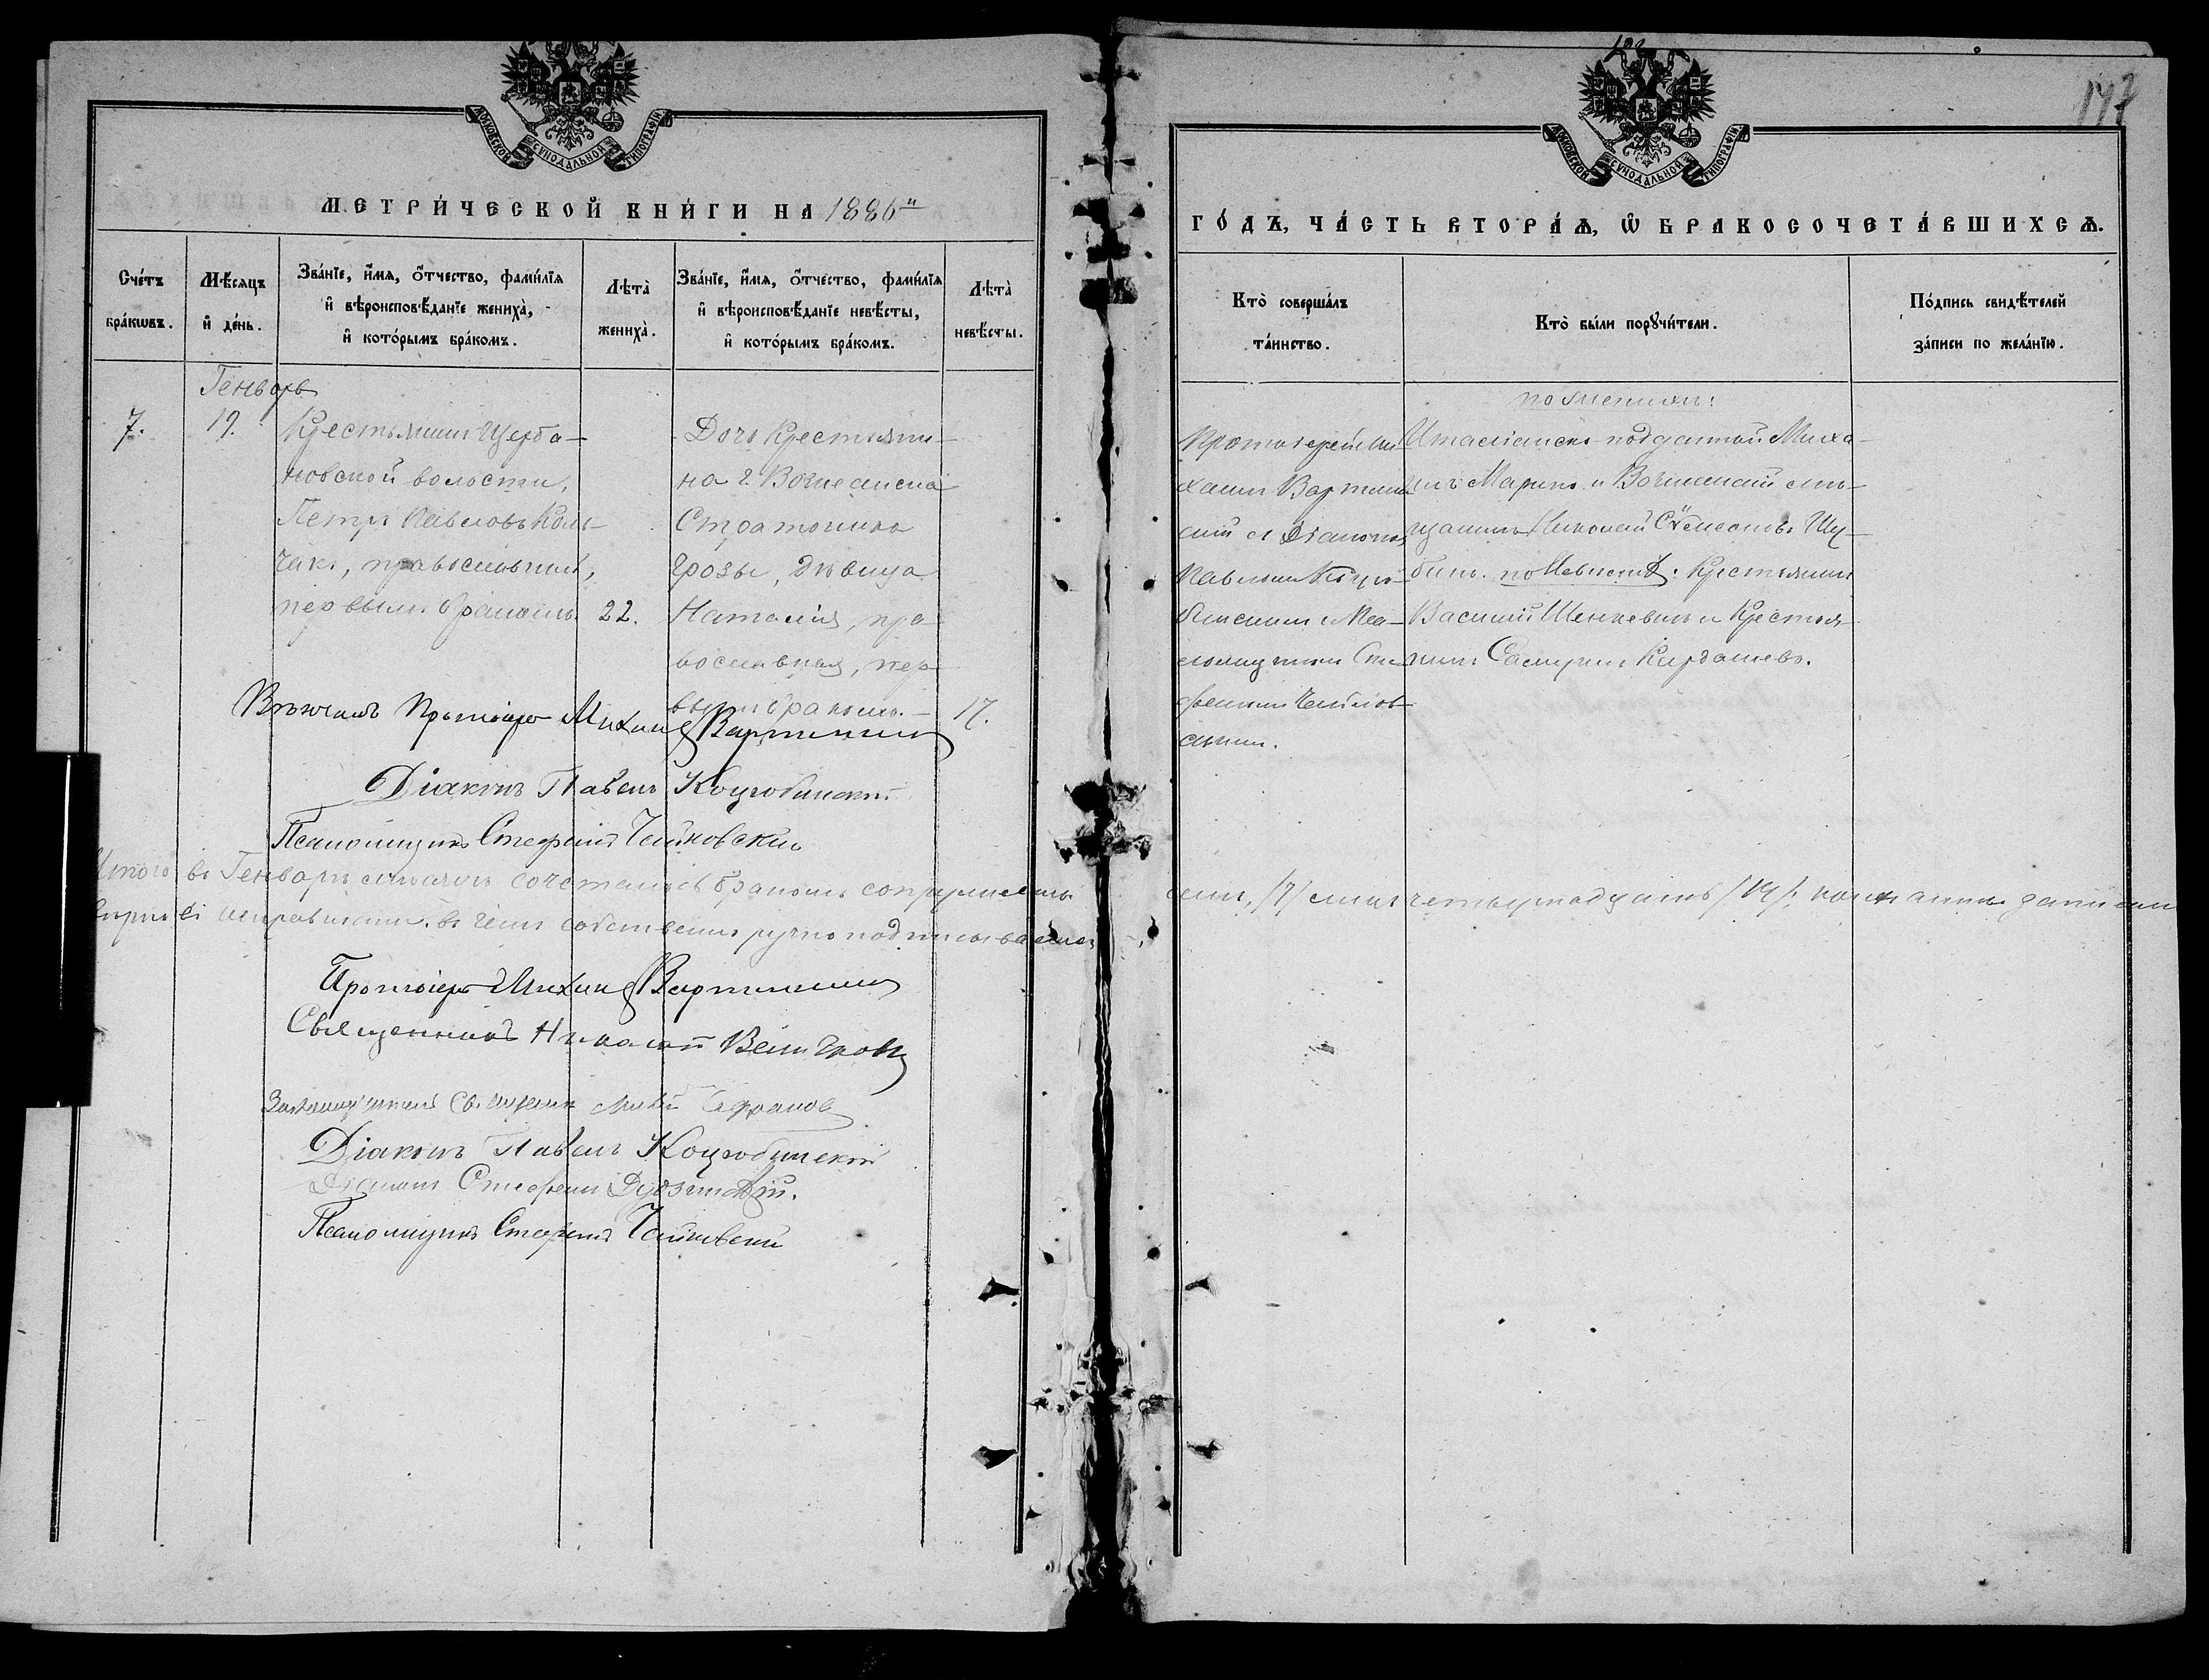 МОСКОВСКОЙ СѴНОДАЛЬНОЙ ТИПОГРАФІИ
МЕТРИ́ЧЕСКОЙ КНИ́ГИ НА 1886й
Сче́тъ бра́кѡвъ.
Мѣ́сяцъ и҆ де́нь.
Зва́нїе, и҆́мя, ѻ҆́тчество, фами́лїя
и҆ вѣроисповѣ́данїе жениха̀,
и҆ кото́рымъ бра́комъ.
Лѣта̀ жениха̀.
Зва́нїе, и҆́мя, ѻ҆́тчество, фами́лїя
и҆ вѣроисповѣ́данїе невѣ́сты,
и҆ кото́рымъ бра́комъ.
Лѣта̀ невѣ́сты.
Генварь
7.
19.
Крестьянинъ Щерба-
новской волости,
Петръ Павловъ Кол-
чакъ, православный,
первымъ бракомъ.
22.
Дочь Крестьяни-
на г. Вознесенска
Стратоника
Грозы, дѣвица
Наталія, пра-
вославная, пер-
вымъ бракомъ.
17.
Вѣнчалъ Протоіерей Михаилъ
Діаконъ Павелъ Коцюбинскій
Псаломщикъ Стефанъ Чайковскій
Итого въ Генварѣ мѣсяцѣ сочеталось бракомъ
въ чемъ собственноручно подписываемся
Протоіерей Михаилъ
Священникъ Николай
Діаконъ Павелъ Коцюбинскій
Діаконъ Стефанъ
Псаломщикъ Стефанъ Чайковскій
147
МОСКОВСКОЙ СѴНОДАЛЬНОЙ ТИПОГРАФІИ
ГО́ДЪ, ЧА́СТЬ ВТОРА́Ѧ, Ѡ҆ БРАКОСОЧЕТА́ВШИХСѦ.
Кто̀ соверша́лъ
та́инство.
Кто̀ бы́ли порꙋчи́тели.
По́дпись свидѣ́телей
за́писи по жела́нїю.
Протоіерей Ми-
хаилъ
съ Діакономъ
Павломъ Коцю-
бинскимъ и Пса-
ломщикомъ Сте-
фаномъ Чайков-
скимъ.
по женихѣ:
Италіанско-подданный Миха-
илъ Марино и Вознесенскій мѣ-
щанинъ Николай
по невѣстѣ: Крестьянинъ
Василій Шенкевичъ и Крестья-
нинъ Кардашевъ.
семь, /7/ лицъ четырнадцать /14/: